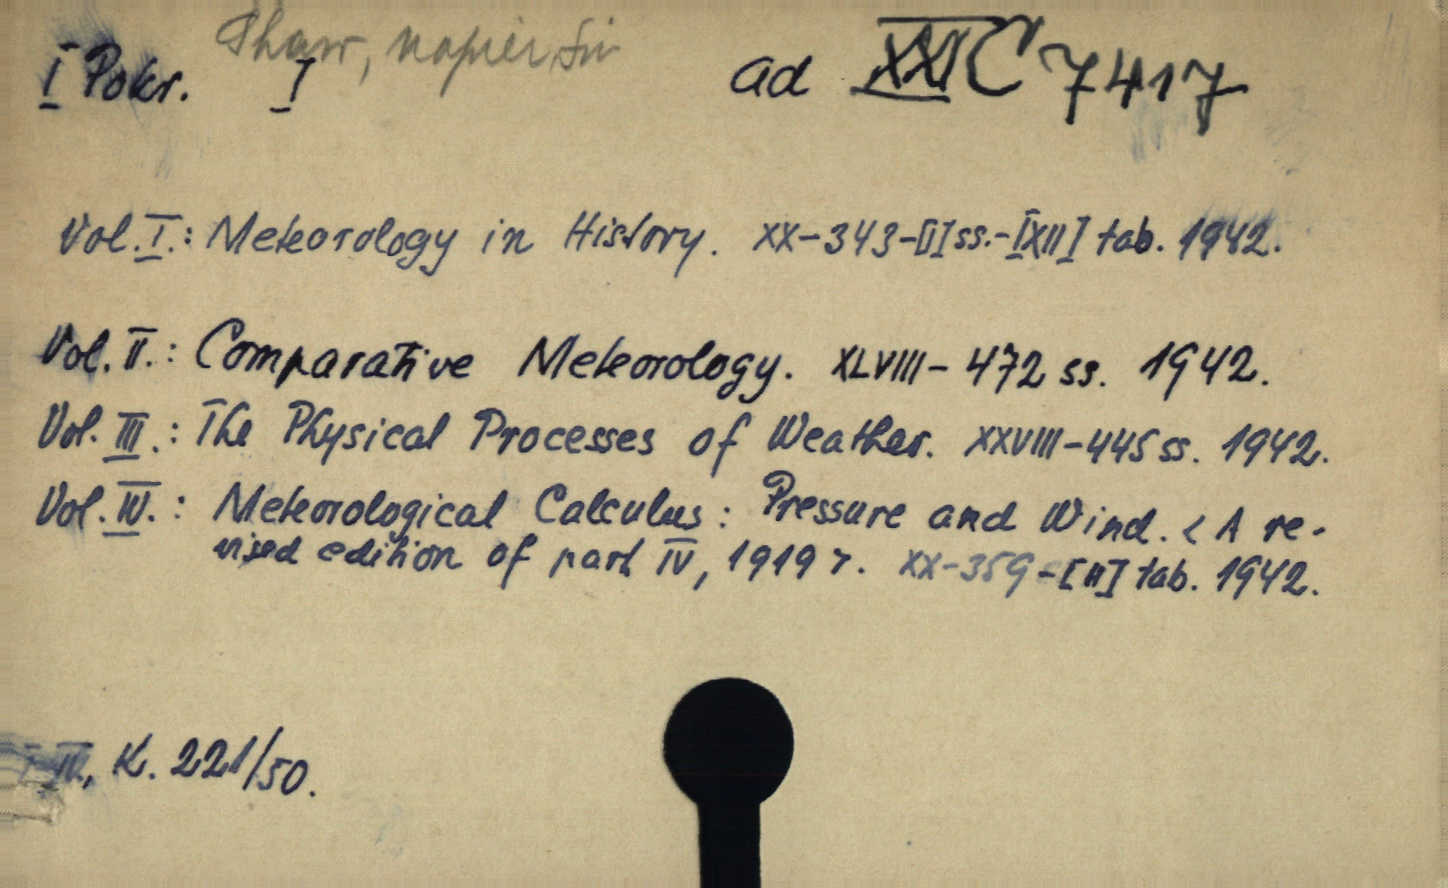 Shaw, Napier Sir
I Pokr. I ad XXI C 7417
Vol. I.: Meteorology in History. XX-343-[I] ss.-[XII] tab. 1942.
Vol. II.: Comparative Meteorology. XLVIII-472 ss. 1942.
Vol. III.: The Physical Processes of Weather. XXVIII-445 ss. 1942.
Vol. IV.: Meteorological Calculus: Pressure and Wind. < A re-
vised edition of part IV, 1919 >. XX-359-[II] tab. 1942.
I-IV, K. 221/50.